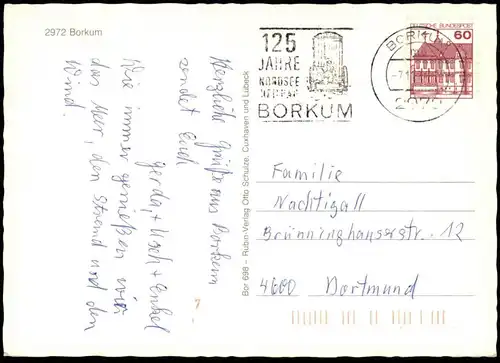 2972 Borkum
Herzliche Grüße aus Borkum
sendet Euch
Gerda, + Usch + Enkel
Wie immer genießen wir
das Meer, den Strand und den
Wind.
Bor 698 - Rubin-Verlag Otto Schulze, Cuxhaven und Lübeck
125
JAHRE
NORDSEE
HEILBAD
BORKUM
BORKUM
-7.1
2972
DEUTSCHE BUNDESPOST
60
Familie
Nachtigall
Brünninghauserstr. 12
4600 Dortmund